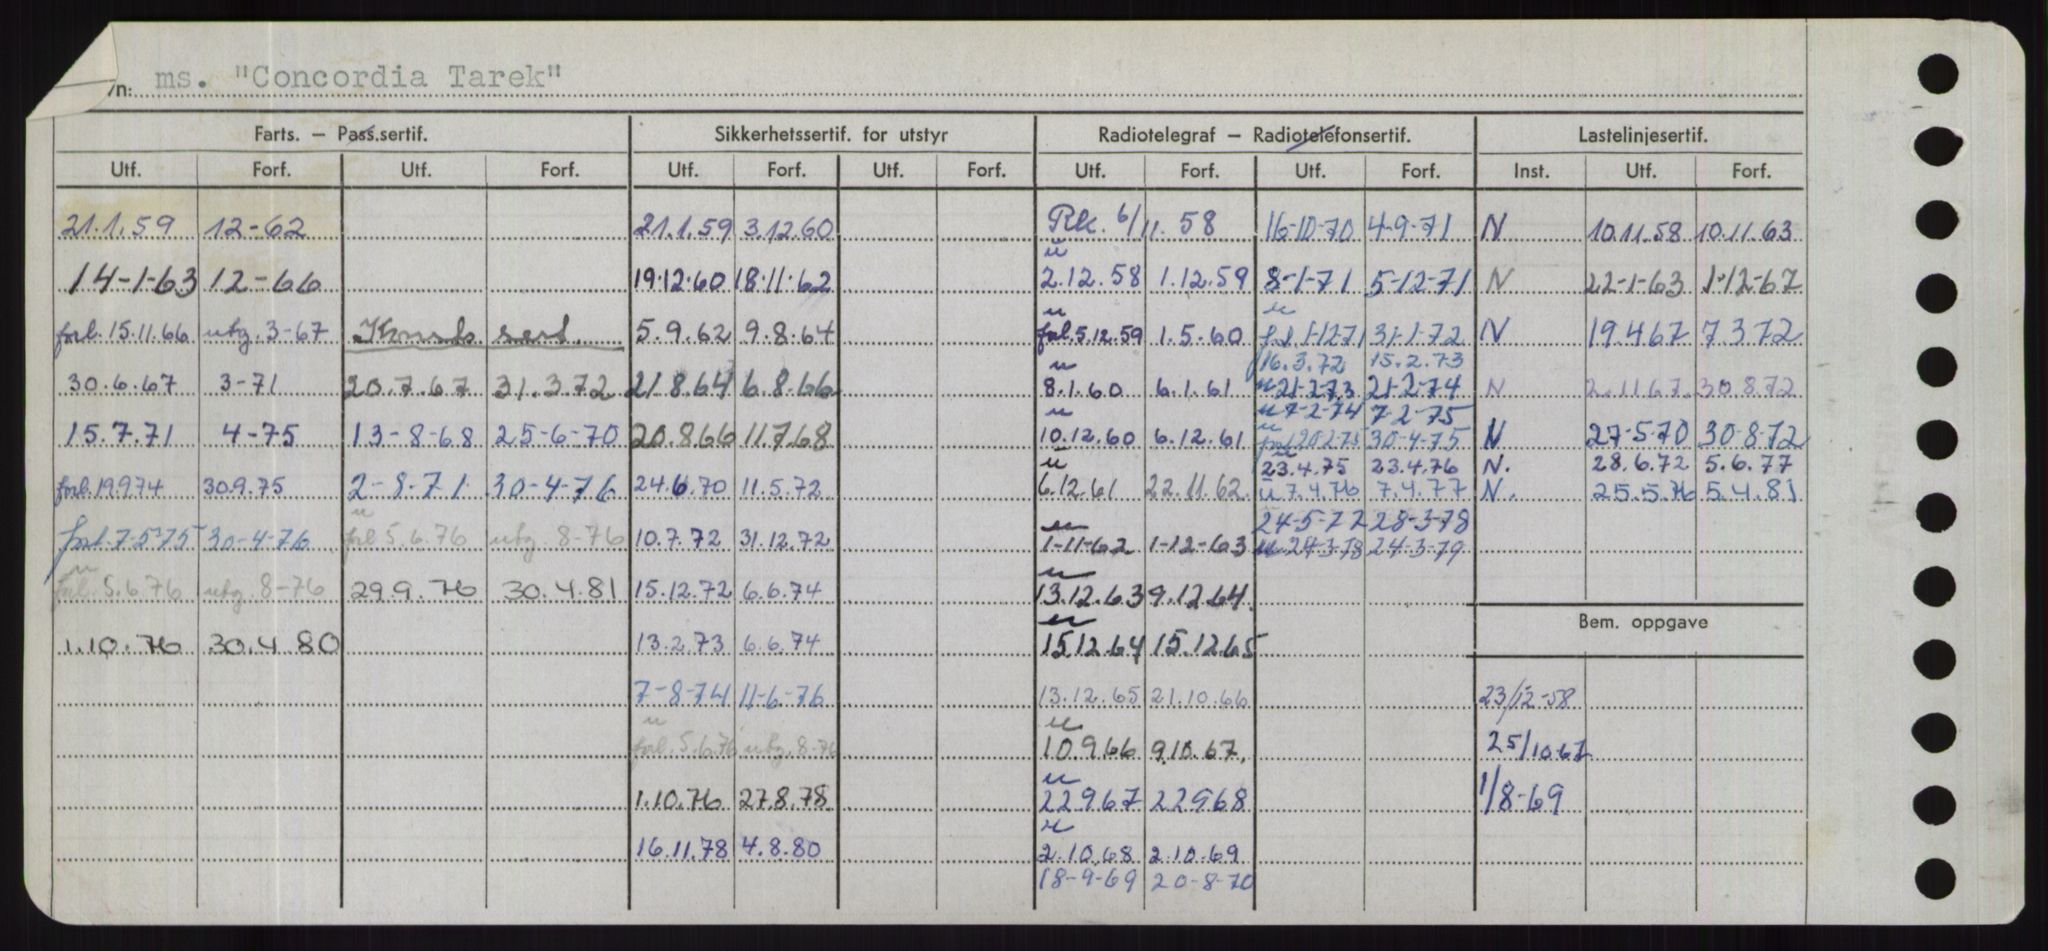 /n: ms. "Concordia Tarek"
Farts. — Pass.sertif. Sikkerhetssertif. for utstyr Radiotelegraf — Radiotelefonsertif. Lastelinjesertif.
Utf. Forf. Utf. Forf. Utf. Forf. Utf. Forf. Utf. Forf. Utf. Forf. Inst. Utf. Forf.
21.1.59 12-62 21.1.59 3.12.60 Rk. 6/11. 58 16-10-70 4-9-71 N 10.11.58 10.11.63
u
14-1-63 12-66 19.12.60 18.11.62 2.12.58 1.12.59 8-1-71 5-12-71 N 22-1-63 1-12-67
u u
forl. 15.11.66 utg. 3-67 Konstr. sert. 5.9.62 9.8.64 forl. 5.12.59 1.5.60 forl. 1-12-71 31-1-72 N 19.4.67 7.3.72
u 16.3.72 15.2.73
30.6.67 3-71 20.7.67 31.3.72 21.8.64 6.8.66 8.1.60 6.1.61 u 21-2-73 21-2-74 N 2.11.67. 30.8.72
u u 7-2-74 7-2-75
15.7.71 4-75 13-8-68 25-6-70 20.8.66 11.7.68 10.12.60 6.12.61 u forl. 20-2-75 30-4-75 N 27-5-70 30-8-72
u u 23.4.75 23.4.76 N. 28.6.72 5.6.77
forl. 19.9.74 30.9.75 2-8-71 30-4-76 24.6.70 11.5.72 6.12.61 22.11.62. u 7.4.76 7.4.77 N. 25.5.76 5.4.81
u u 24-5-77 28-3-78
forl. 7-5-75 30-4-76 forl 5.6.76 utg. 8-76 10.7.72 31.12.72 1-11-62 1-12-63 u 24-3-78 24-3-79
u u
forl. 5.6.76 utg. 8-76 29.9.76 30.4.81 15.12.72 6.6.74 13.12.63 9.12.64.
u Bem. oppgave
1.10.76 30.4.80 13.2.73 6.6.74 15.12.64 15.12.65
7-8-74 11-6-76 13.12.65 21.10.66 23/12-58
u u
forl. 5.6.76 utg. 8-76 10.9.66 9.10.67. 25/10-67
u
1.10.76 27.8.78 22.9.67 22.9.68 1/8-69
u
16.11.78 4.8.80 2.10.68 2.10.69
18-9-69 20-8-70